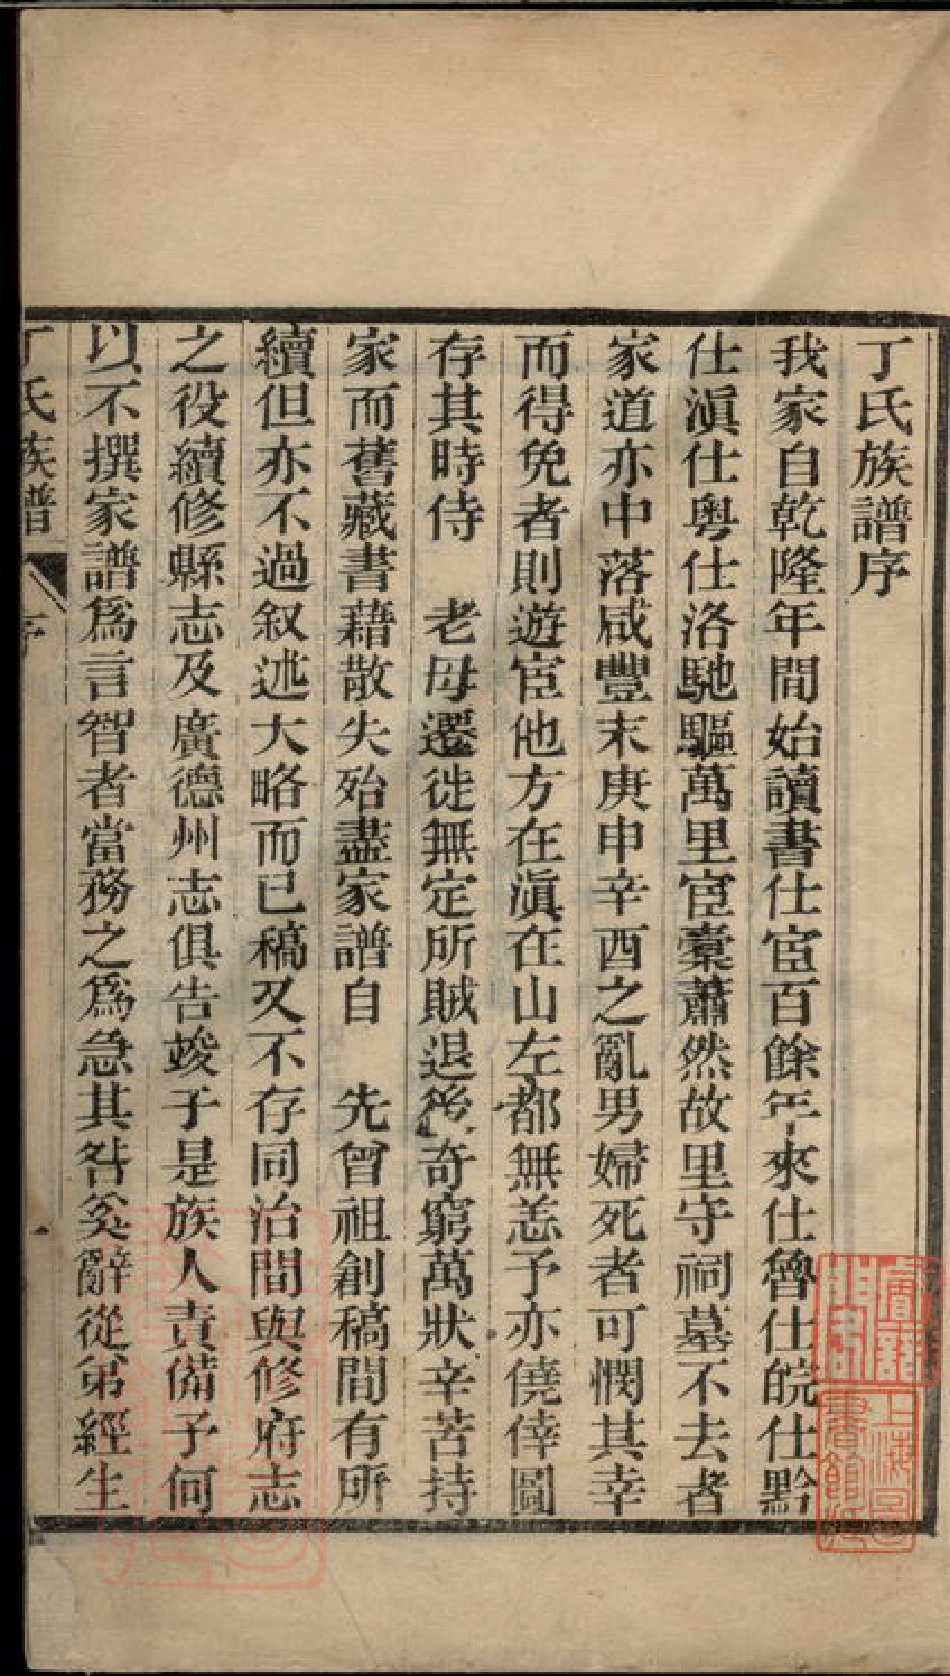 丁氏族譜序
我家自乾隆年間始讀書仕宦百餘年來仕魯仕皖仕黔
仕滇仕粵仕洛馳驅萬里宦橐蕭然故里守祠墓不去者
家道亦中落咸豐末庚申辛酉之亂男婦死者可憫其幸
而得免者則遊宦他方在滇在山左都無恙予亦僥倖圖
存其時侍　老母遷徙無定所賊退後奇窮萬狀辛苦持
家而舊藏書藉散失殆盡家譜自　先曾祖創稿間有所
續但亦不過叙述大略而已稿又不存同治間與修府志
之役續修縣志及廣德州志俱告竣于是族人責備予何
以不撰家譜爲言智者當務之爲急其咎奚辭從弟經生
丁氏族譜
序
上海圖書館藏